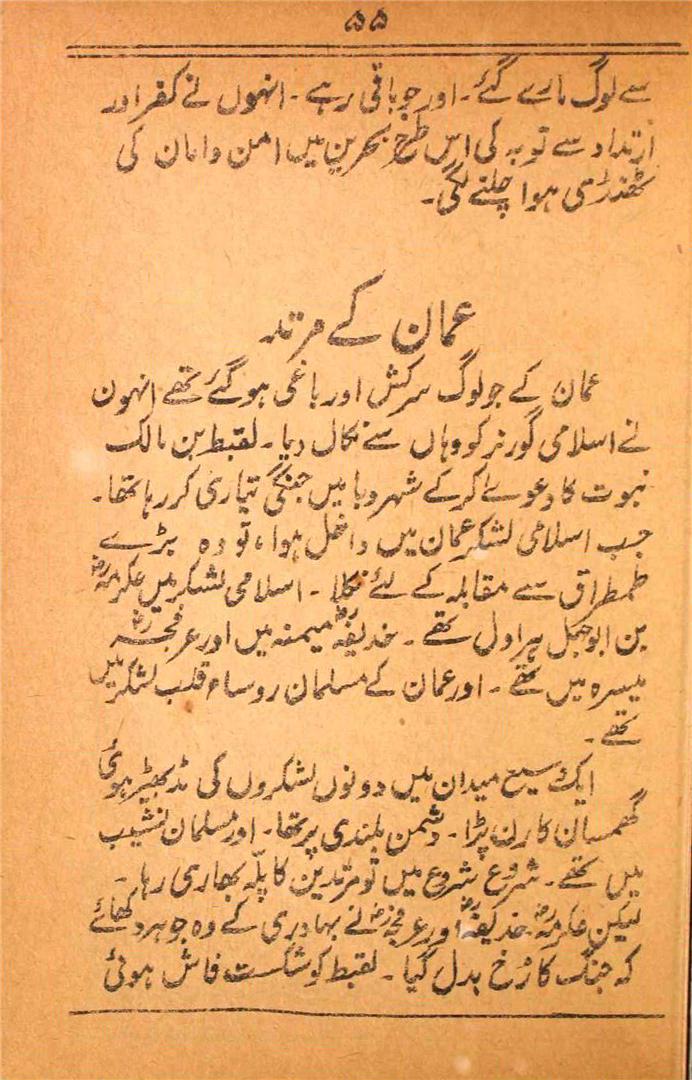 ۵۵
سے لوگ مارے گئے۔ اور جو باقی رہے۔ انہوں نے کفر اور
ارتداد سے توبہ کی اس طرح بحرین میں امن و امان کی
ٹھنڈی ہوا چلنے لگی۔
عمان کے مرتد
عمان کے جو لوگ سرکش اور باغی ہو گئے تھے انہوں
نے اسلامی گورنر کو وہاں سے نکال دیا۔ لقیط بن مالک
نبوت کا دعوے کر کے شہر دبا میں جنگی تیاری کر رہا تھا۔
جب اسلامی لشکر عمان میں داخل ہوا، تو وہ بڑے
طمطراق سے مقابلہ کے لئے نکلا۔ اسلامی لشکر میں عکرمہؓ
بن ابوجہل ہراول تھے۔ حذیفہؓ میمنہ میں اور عرفجہؓ
میسرہ میں تھے۔ اور عمان کے مسلمان روساء قلب لشکر میں
تھے۔
ایک وسیع میدان میں دونوں لشکروں کی مڈبھیڑ ہوئی
گھمسان کا رن پڑا۔ دشمن بلندی پر تھا۔ اور مسلمان نشیب
میں تھے۔ شروع شروع میں تو مرتدین کا پلّہ بھاری رہا۔
لیکن عکرمہؓ حذیفہؓ اور عرفجہؓ نے بہادری کے وہ جوہر دکھائے
کہ جنگ کا رُخ بدل گیا۔ لقیط کو شکست فاش ہوئی